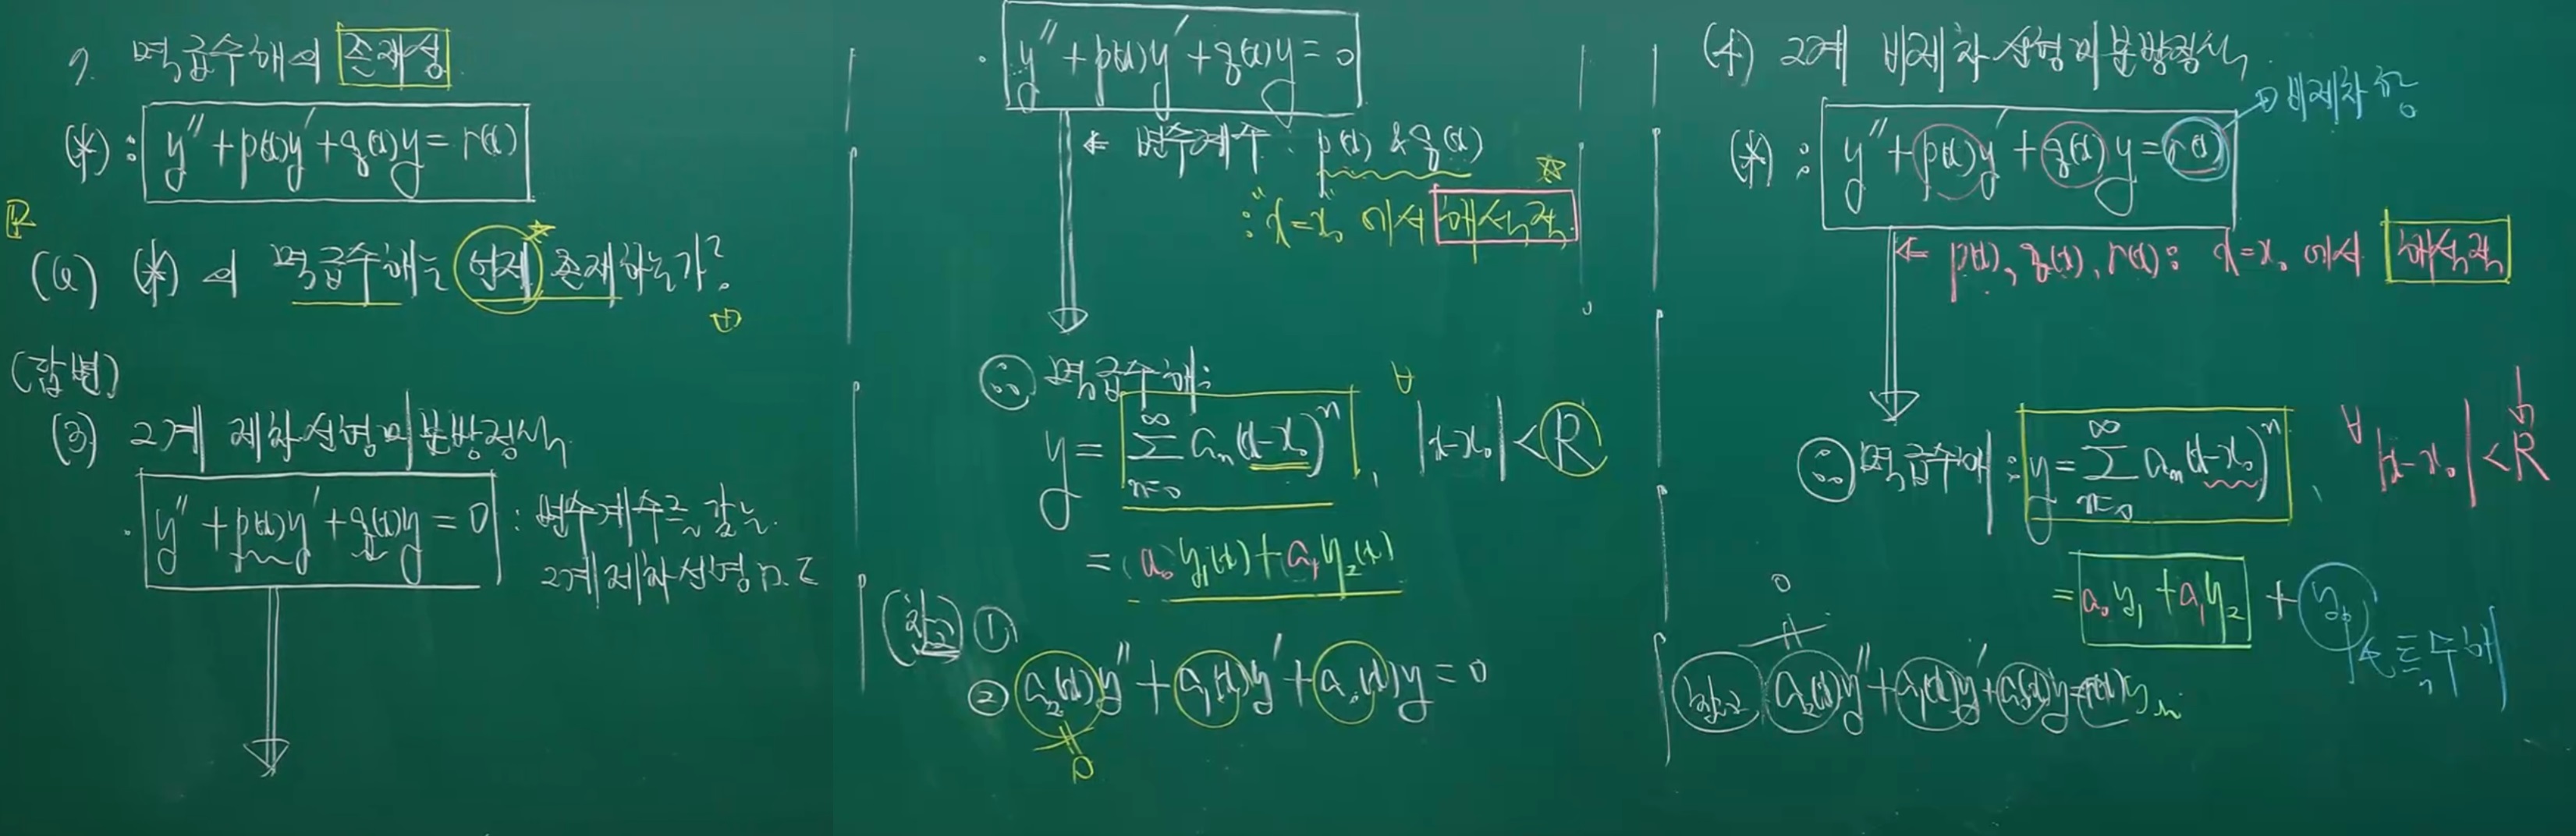 7. 멱급수해의 존재성
(*) : y'' + p(x)y' + q(x)y = r(x)
(Q) (*)의 멱급수해는 언제 존재하는가?
(답변)
(3) 2계 제차선형미분방정식
· y'' + p(x)y' + q(x)y = 0 : 변수계수를 갖는
2계제차선형
· y'' + p(x)y' + q(x)y = 0
⇐ 변수계수 p(x) & q(x)
: "x=x₀"에서 해석적
∴ 멱급수해:
y = ∑_{n=0}^{∞} aₙ(x-x₀)ⁿ, ∀ |x-x₀| < R
= a₀y₁(x) + a₁y₂(x)
(참고) ①
② a₂(x)y'' + a₁(x)y' + a₀(x)y = 0
≠ 0
(4) 2계 비제차선형미분방정식
비제차항
(*) : y'' + p(x)y' + q(x)y = r(x)
⇐ p(x), q(x), r(x) : x=x₀ 에서 해석적
∴ 멱급수해 : y = ∑_{n=0}^{∞} aₙ(x-x₀)ⁿ, ∀ |x-x₀| < R
= a₀y₁ + a₁y₂ + yₚ
특수해
0 ≠
참고 a₂(x)y'' + a₁(x)y' + a₀(x)y = r(x) yₕ